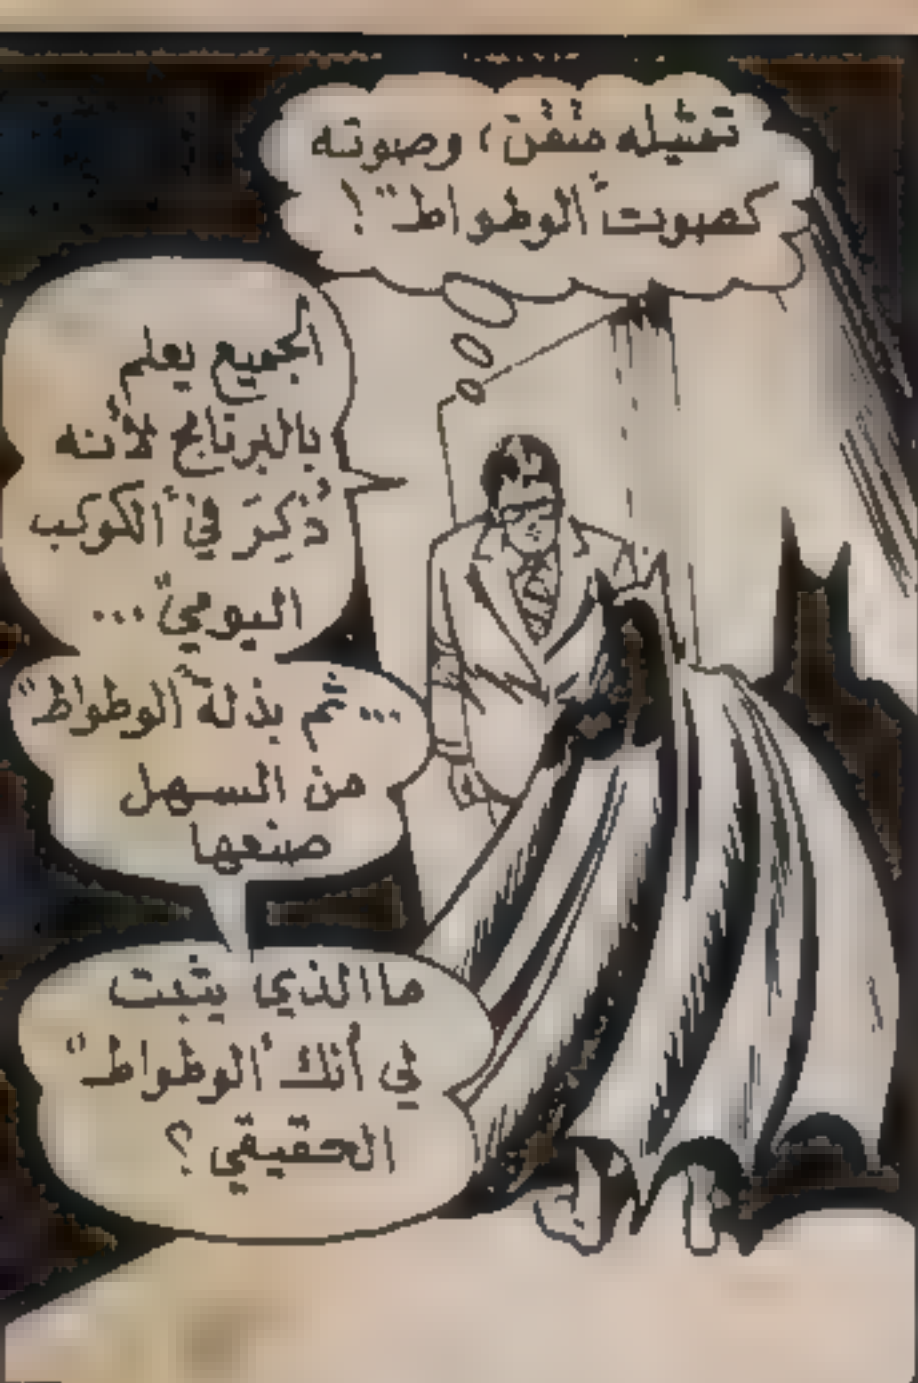 تمثيله متقن، وصوته
كصوت "الوطواط"!
الجميع يعلم
بالبرنامج لأنه
ذُكِرَ في "الكوكب
اليومي" ...
... ثم بذلة "الوطواط"
من السهل
صنعها
ما الذي يثبت
لي أنك "الوطواط"
الحقيقي؟